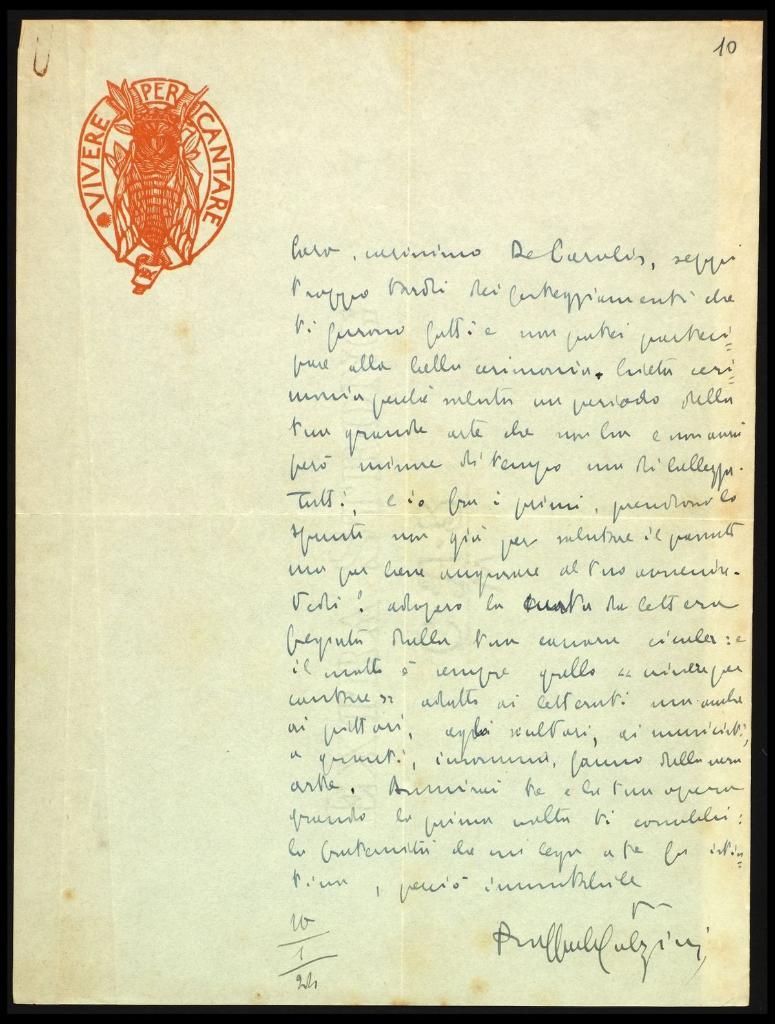 10
VIVERE PER CANTARE
Caro, carissimo De Carolis, seppi
troppo tardi dei festeggiamenti che
ti furono fatti e non potei parteci=
pare alla bella cerimonia. Lieta ceri=
monia perché saluta un periodo della
tua grande arte che non ha e non avrà
però misura di tempo ma di bellezza.
Tutti, e io fra i primi, prendono lo
spunto non già per salutare il passato
ma per bene augurare al tuo avvenire.
Vedi! adopero la carta da lettera
fregiata dalla tua canora cicala: e
il motto è sempre quello "vivere per
cantare" adatto ai letterati ma anche
ai pittori, agli scultori, ai musicisti,
a quanti, insomma, fanno della vera
arte. Ammirai te e la tua opera
quando la prima volta ti conobbi:
la fraternità che mi lega a te fu istin=
tiva, perciò immutabile
tuo
Raffaele Calzini
10
1
24